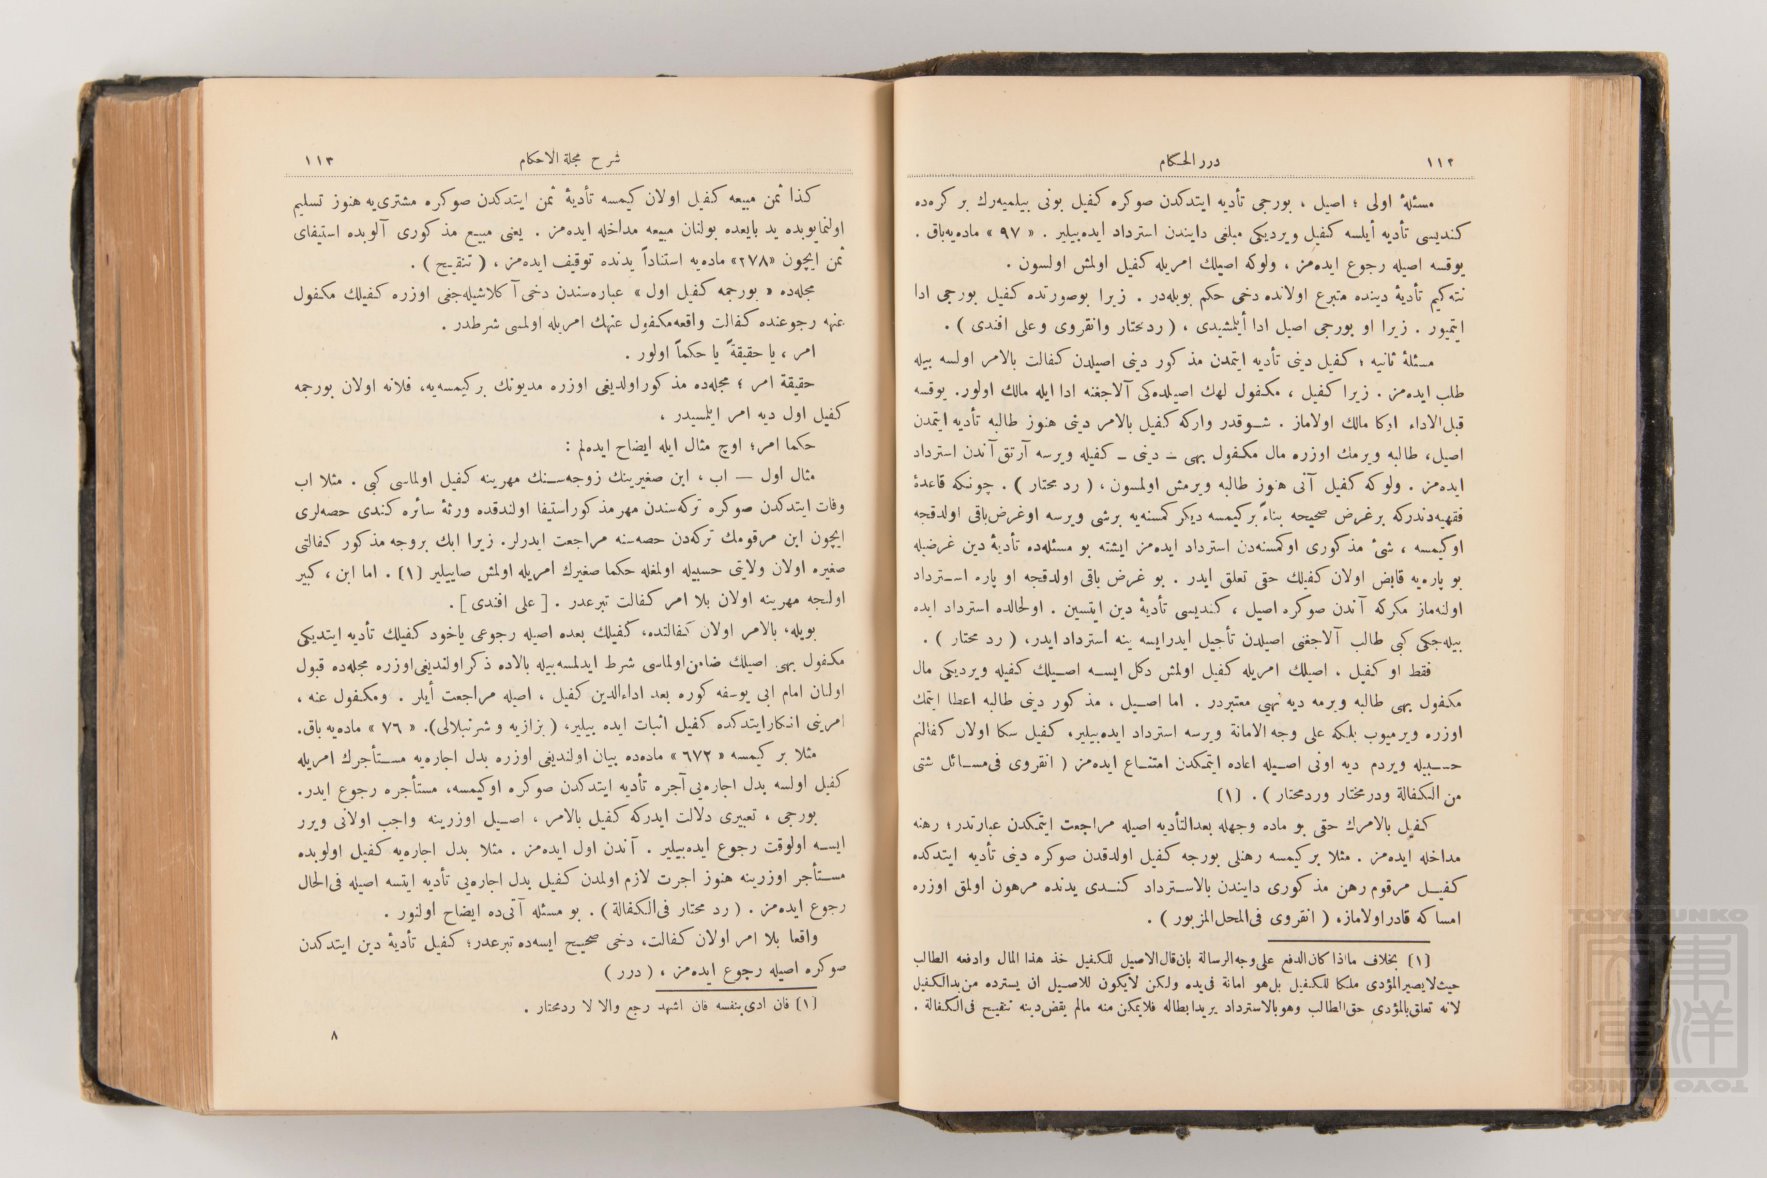 ١١٢
درر الحكام
مسئلهٔ اولی ؛ اصیل ، بورجی تأدیه ایتدکدن صوکره کفیل بونی بیلمیه‌رك بر کره‌ده
کندیسی تأدیه أیلسه کفیل ویردیکی مبلغی دایندن استرداد ایده‌بیلیر . « ٩٧ » ماده‌یه‌باق .
یوقسه اصیله رجوع ایده‌مز ، ولوکه اصیلك امریله کفیل اولمش اولسون .
نته‌کیم تأدیهٔ دینده متبرع اولانده دخی حکم بویله‌در . زیرا بوصورتده کفیل بورجی ادا
ایتمیور . زیرا او بورجی اصیل ادا أیلمشیدی ، ( ردمختار وانقروی وعلی افندی ) .
مسئلهٔ ثانیه ؛ کفیل دینی تأدیه ایتمدن مذکور دینی اصیلدن کفالت بالامر اولسه بیله
طلب ایده‌مز . زیرا کفیل ، مکفول لهك اصیلده‌کی آلاجغنه ادا ایله مالك اولور. یوقسه
قبل‌الاداء اوکا مالك اولاماز . شوقدر وارکه کفیل بالامر دینی هنوز طالبه تأدیه ایتمدن
اصیل، طالبه ویرمك اوزره مال مکفول بهی ـ دینی ـ کفیله ویرسه آرتق آندن استرداد
ایده‌مز . ولوکه کفیل آنی هنوز طالبه ویرمش اولمسون ، ( رد مختار ) . چونکه قاعدهٔ
فقهیه‌دندرکه برغرض صحیحه بناءً برکیمسه دیکر کمسنه‌یه برشی ویرسه اوغرض‌باقی اولدقجه
اوکیمسه ، شیٔ مذکوری اوکمسنه‌دن استرداد ایده‌مز ایشته بو مسئله‌ده تأدیهٔ دین غرضیله
بو پاره‌یه قابض اولان کفیلك حقی تعلق ایدر . بو غرض باقی اولدقجه او پاره استرداد
اولنه‌ماز مکرکه آندن صوکره اصیل ، کندیسی تأدیهٔ دین ایتسین . اولحالده استرداد ایده
بیله‌جکی کبی طالب آلاجغنی اصیلدن تأجیل ایدرایسه ینه استرداد ایدر، ( رد مختار ) .
فقط او کفیل ، اصیلك امریله کفیل اولمش دکل ایسه اصیلك کفیله ویردیکی مال
مکفول بهی طالبه ویرمه دیه نهیی معتبردر . اما اصیل ، مذکور دینی طالبه اعطا ایتمك
اوزره ویرمیوب بلکه علی وجه الامانة ویرسه استرداد ایده‌بیلیر، کفیل سکا اولان کفالتم
حسبیله ویردم دیه اونی اصیله اعاده ایتمکدن امتناع ایده‌مز ( انقروی فی‌مسائل شتی
من الکفالة ودرمختار وردمختار ) . (١)
کفیل بالامرك حقی بو ماده وجهله بعدالتأدیه اصیله مراجعت ایتمکدن عبارتدر؛ رهنه
مداخله ایده‌مز . مثلا برکیمسه رهنلی بورجه کفیل اولدقدن صوکره دینی تأدیه ایتدکده
کفیل مرقوم رهن مذکوری دایندن بالاسترداد کندی یدنده مرهون اولمق اوزره
امساکه قادراولاماز، ( انقروی فی‌المحل‌المزبور ) .
(١) بخلاف مااذا کان‌الدفع علی‌وجه‌الرسالة بان‌قال‌الاصیل للکفیل خذ هذا المال وادفعه الطالب
حیث‌لایصیرالمؤدی ملکا للکفیل بل‌هو امانة فی‌یده ولکن لایکون للاصیل ان یسترده من‌یدالکفیل
لانه تعلق‌بالمؤدی حق‌الطالب وهوبالاسترداد یریدابطاله فلایمکن منه مالم یقض‌دینه تنقیح فی‌الکفالة .
شرح مجلة الاحکام
١١٣
کذا ثمن مبیعه کفیل اولان کیمسه تأدیهٔ ثمن ایتدکدن صوکره مشتری‌یه هنوز تسلیم
اولنمایوبده ید بایعده بولنان مبیعه مداخله ایده‌مز . یعنی مبیع مذکوری آلوبده استیفای
ثمن ایچون «٢٧٨» ماده‌یه استناداً یدنده توقیف ایده‌مز ، ( تنقیح ) .
مجله‌ده « بورجمه کفیل اول » عباره‌سندن دخی آکلاشیله‌جغی اوزره کفیلك مکفول
عنهه رجوعنده کفالت واقعه‌مکفول عنهك امریله اولمسی شرطدر .
امر ، یا حقیقةً یا حکماً اولور .
حقیقة امر ؛ مجله‌ده مذکوراولدیغی اوزره مدیونك برکیمسه‌یه، فلانه اولان بورجمه
کفیل اول دیه امر ایلمسیدر ،
حکما امر؛ اوچ مثال ایله ایضاح ایده‌لم :
مثال اول — اب ، ابن صغیرینك زوجه‌سنك مهرینه کفیل اولماسی کبی . مثلا اب
وفات ایتدکدن صوکره ترکه‌سندن مهرمذکوراستیفا اولندقده ورثهٔ سائره کندی حصه‌لری
ایچون ابن مرقومك ترکه‌دن حصه‌سنه مراجعت ایدرلر. زیرا ابك بروجه مذکور کفالتی
صغیره اولان ولایتی حسبیله اولمغله حکما صغیرك امریله اولمش صاییلیر (١) . اما ابن ، کبیر
اولنجه مهرینه اولان بلا امر کفالت تبرعدر . [ علی افندی ] .
بویله، بالامر اولان کفالتده، کفیلك بعده اصیله رجوعی یاخود کفیلك تأدیه ایتدیکی
مکفول بهی اصیلك ضامن‌اولماسی شرط ایدلمسه‌بیله بالاده ذکراولندیغی‌اوزره مجله‌ده قبول
اولنان امام ابی یوسفه کوره بعد اداءالدین کفیل ، اصیله مراجعت أیلر . ومکفول عنه ،
امرینی انکارایتدکده کفیل اثبات ایده بیلیر، ( بزازیه و شرنبلالی). « ٧٦ » ماده‌یه باق.
مثلا بر کیمسه « ٦٧٢ » ماده‌ده بیان اولندیغی اوزره بدل اجاره‌یه مستأجرك امریله
کفیل اولسه بدل اجاره‌یی‌آجره تأدیه ایتدکدن صوکره اوکیمسه، مستأجره رجوع ایدر.
بورجی ، تعبیری دلالت ایدرکه کفیل بالامر ، اصیل اوزرینه واجب اولانی ویرر
ایسه اولوقت رجوع ایده‌بیلیر . آندن اول ایده‌مز . مثلا بدل اجاره‌یه کفیل اولوبده
مستأجر اوزرینه هنوز اجرت لازم اولمدن کفیل بدل اجاره‌یی تأدیه ایتسه اصیله فی‌الحال
رجوع ایده‌مز . ( رد مختار فی‌الکفالة ) . بو مسئله آتی‌ده ایضاح اولنور .
واقعا بلا امر اولان کفالت، دخی صحیح ایسه‌ده تبرعدر؛ کفیل تأدیهٔ دین ایتدکدن
صوکره اصیله رجوع ایده‌مز ، ( درر )
(١) فان ادی‌بنفسه فان اشهد رجع والا لا ردمختار .
٨
TOYO BUNKO
東洋文庫
TOYO BUNKO